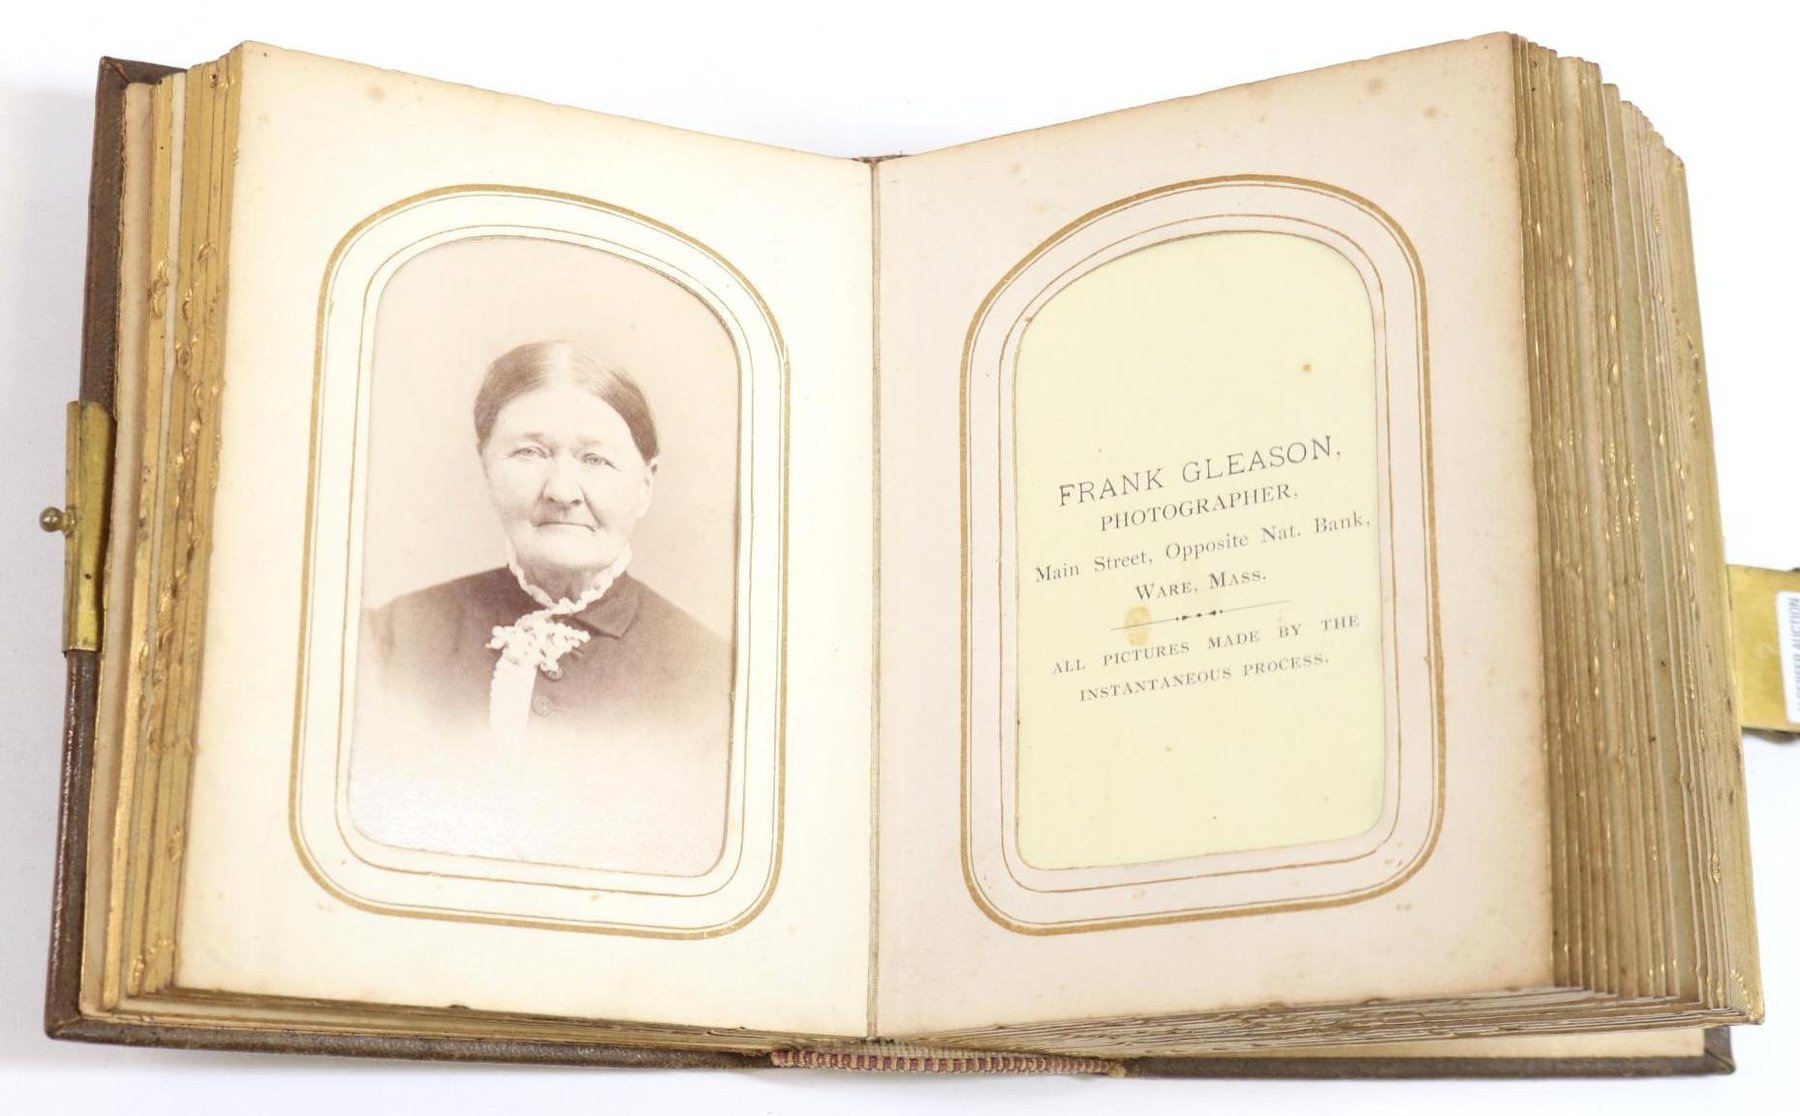 FRANK GLEASON,
PHOTOGRAPHER,
Main Street, Opposite Nat. Bank,
WARE, MASS.
ALL PICTURES MADE BY THE
INSTANTANEOUS PROCESS.
AUCTION